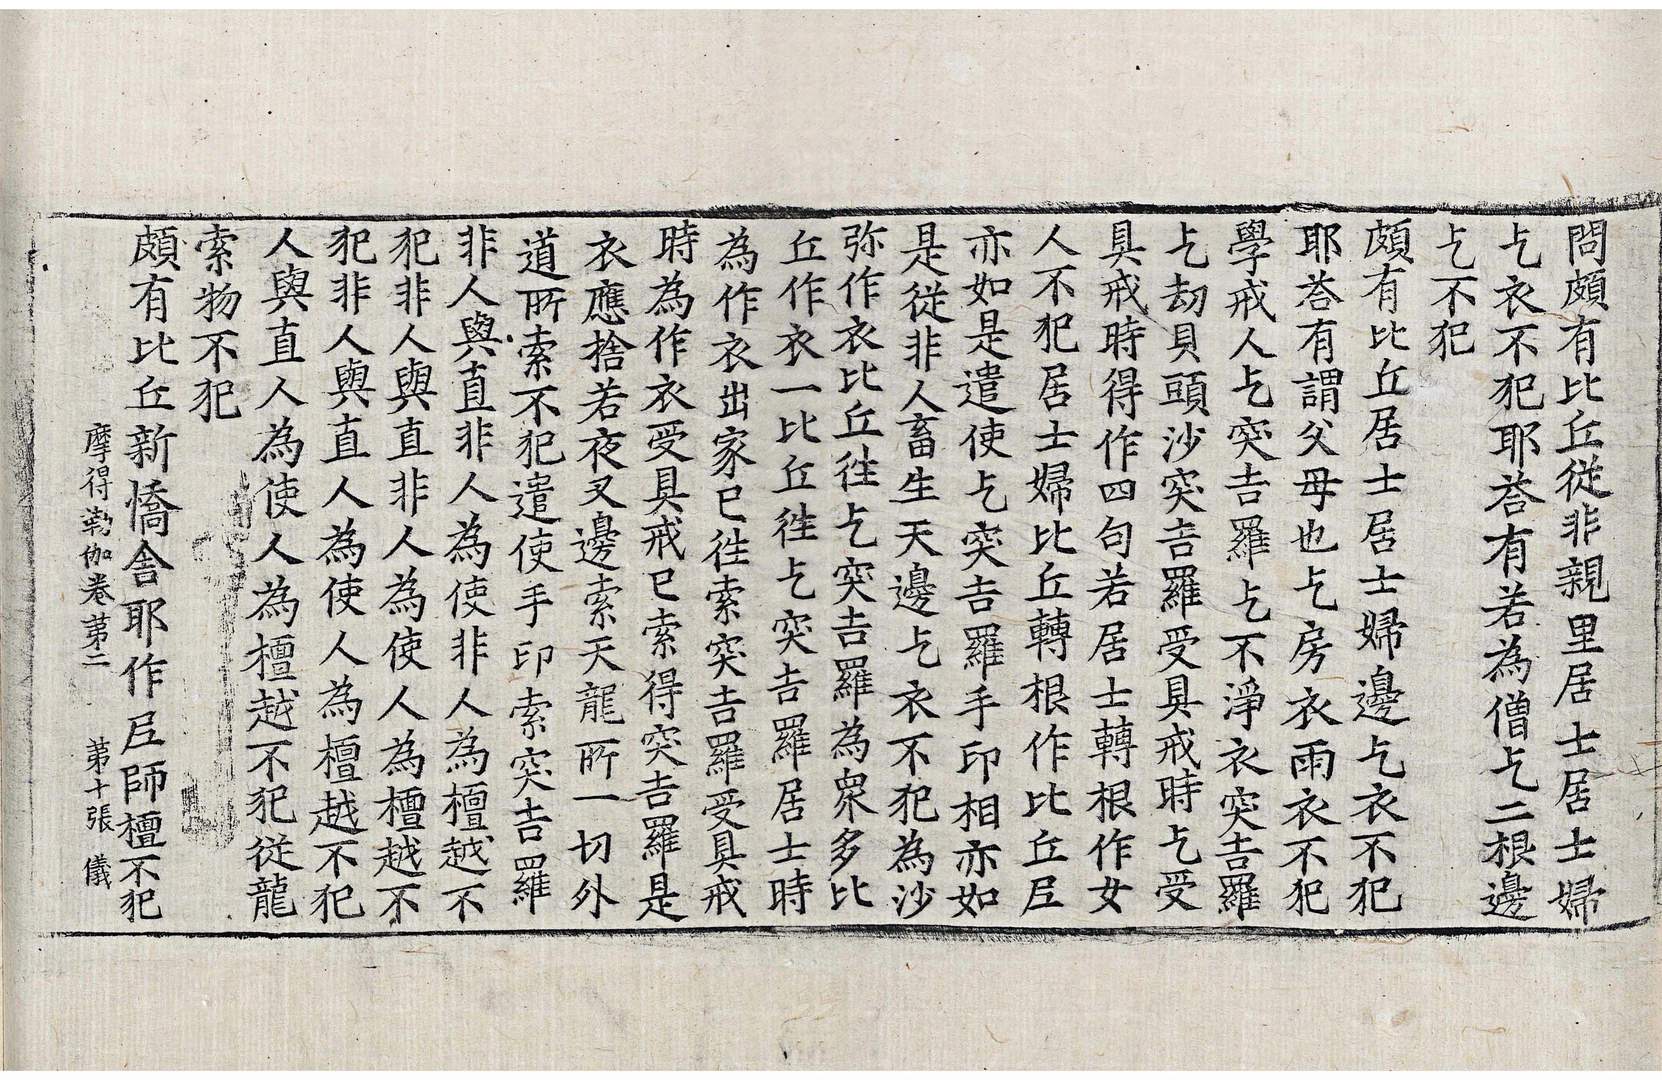 問頗有比丘從非親里居士居士婦
乞衣不犯耶荅有若為僧乞二根邊
乞不犯
頗有比丘居士居士婦邊乞衣不犯
耶荅有謂父母也乞房衣雨衣不犯
學戒人乞突吉羅乞不淨衣突吉羅
乞劫貝頭沙突吉羅受具戒時乞受
具戒時得作四句若居士轉根作女
人不犯居士婦比丘轉根作比丘尼
亦如是遣使乞突吉羅手印相亦如
是從非人畜生天邊乞衣不犯為沙
弥作衣比丘往乞突吉羅為衆多比
丘作衣一比丘往乞突吉羅居士時
為作衣出家已往索突吉羅受具戒
時為作衣受具戒已索得突吉羅是
衣應捨若夜叉邊索天龍所一切外
道所索不犯遣使手印索突吉羅
非人與直非人為使非人為檀越不
犯非人與直非人為使人為檀越不
犯非人與直人為使人為檀越不犯
人與直人為使人為檀越不犯從龍
索物不犯
頗有比丘新憍舍耶作尼師檀不犯
摩得勒伽卷第二 第十張 儀